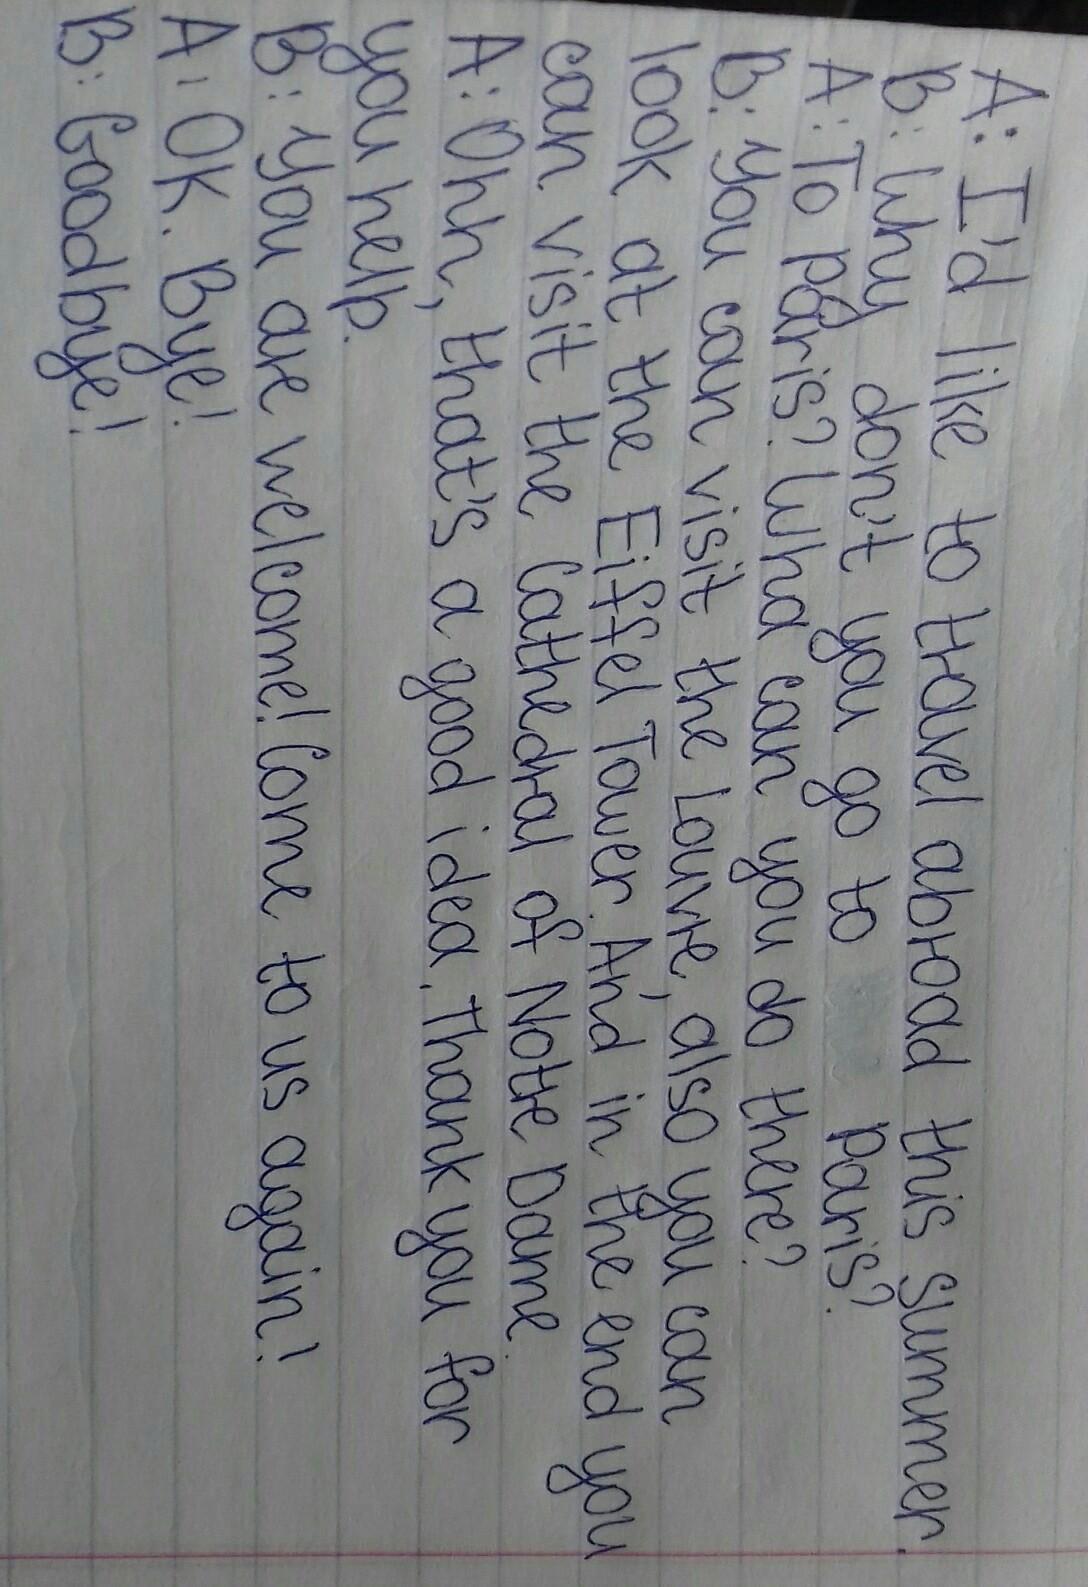 A: I'd like to travel abroad this summer.
B: Why don't you go to paris?
A: To paris? Wha can you do there?
B: you can visit the Louvre, also you can
look at the Eiffel Tower. And in the end you
can visit the Cathedral of Notre Dame.
A: Ohh, that's a good idea. Thank you for
you help.
B: you are welcome! Come to us again!
A: OK. Bye!
B: Goodbye!